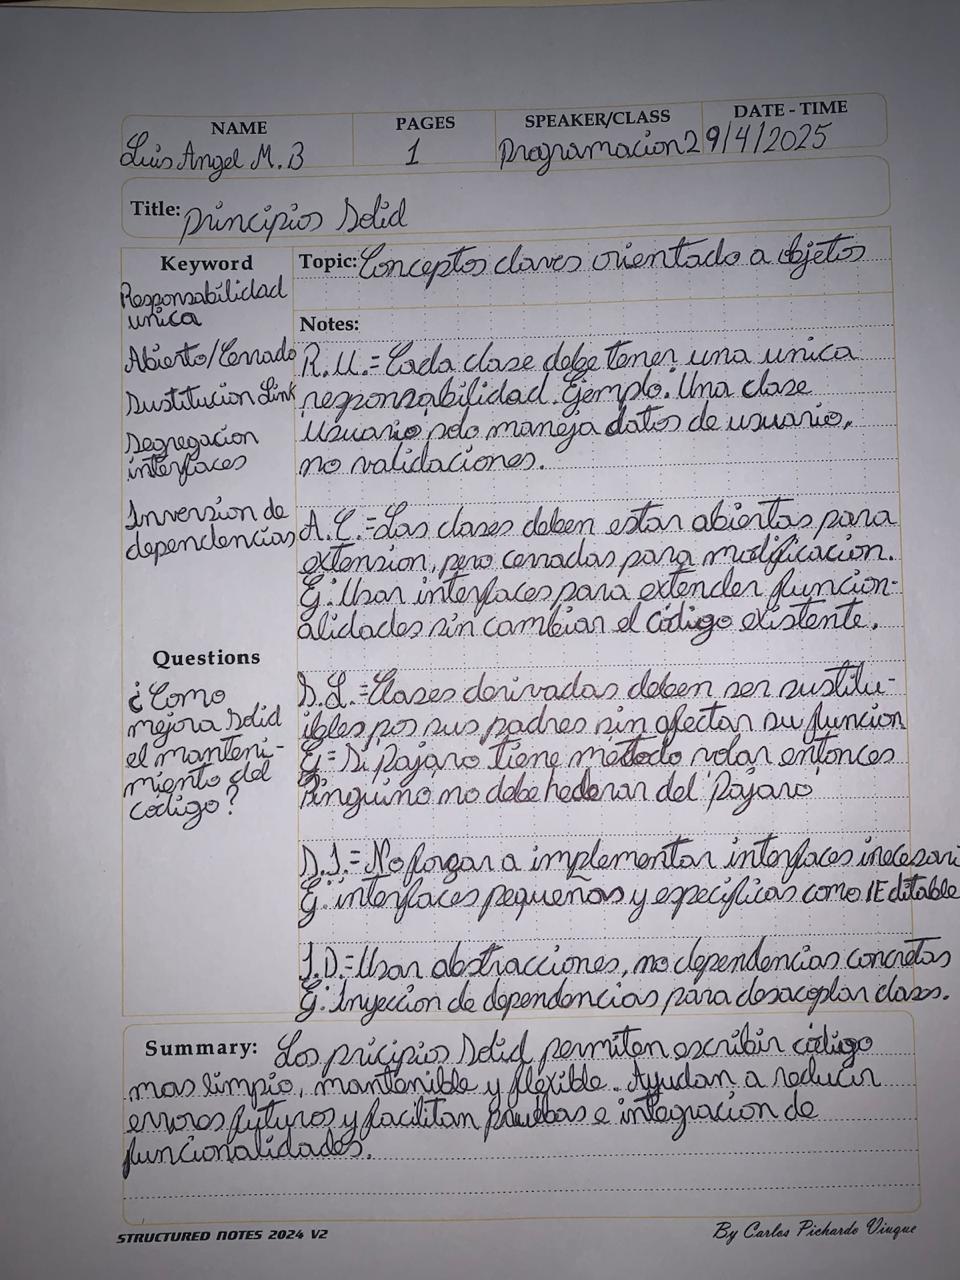 NAME PAGES SPEAKER/CLASS DATE - TIME
Luis Angel M. B 1 Programacion 2 9/4/2025
Title: Principios Solid
Keyword
Responsabilidad
unica
Abierto/Cerrado
Sustitucion Link
Segregacion
interfaces
Inversion de
dependencias
Questions
¿Como
mejora Solid
el manteni-
miento del
código?
Topic: Conceptos claves orientado a objetos
Notes:
R.U.= Cada clase debe tener una unica
responsabilidad. Ejemplo: Una clase
Usuario solo maneja datos de usuario,
no validaciones.
A.C.= Las clases deben estar abiertas para
extension, pero cerradas para modificacion.
Ej: Usar interfaces para extender funcion-
alidades sin cambiar el código existente.
S.L.= Clases derivadas deben ser sustitu-
ibles por sus padres sin afectar su funcion
Ej= Si pajaro tiene metodo volar entonces
Pinguino no debe hederar del Pajaro
S.I.= No forzar a implementar interfaces inecesari
Ej: interfaces pequeñas y especificas como IEditable
I.D.= Usar abstracciones, no dependencias concretas
Ej: Inyeccion de dependencias para desacoplar clases.
Summary: Los pricipios Solid permiten escribir código
mas limpio, mantenible y flexible. Ayudan a reducir
errores futuros y facilitan pruebas e integracion de
funcionalidades.
STRUCTURED NOTES 2024 V2 By Carlos Pichardo Viuque